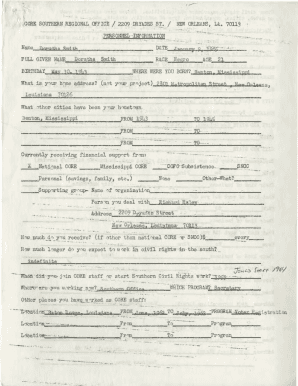 CORE SOUTHERN REGIONAL OFFICE / 2209 DRYADES ST. / NEW ORLEANS, LA. 70113
PERSONNEL INFORMATION
Name Doratha Smith DATE January
FULL GIVEN NAME Doratha Smith RACE Negro AGE 21
BIRTHDAY May 10, 1943 WHERE WERE YOU BORN? Benton, Mississippi
What is your home address? (not your project) Metropolitan Street, New Orleans,
Louisiana 70126
What other cities have been your hometown
Benton, Mississippi FROM 1943 TO
FROM TO
FROM TO
Currently receiving financial support from:
X National CORE Mississippi CORE COFO Subsistence SNCC
Personal (savings, family, etc.) None Other-What?
Supporting group- Name of organization
Person you deal with Richard Haley
Address 2209 Dryades Street
New Orleans, Louisiana 70113
How much do you receive? (if other than national CORE or SNCC)$ every
How much longer do you expect to work in civil rights in the south?
Indefinite
When did you join CORE staff or start Southern Civil Rights work?
Where are you working now? Southern Office MAJOR PROGRAM Secretary
Other places you have worked as CORE staff:
Location Baton Rouge, Louisiana From June, To July, PROGRAM Voter Registration
Location From To Program
Location From To Program